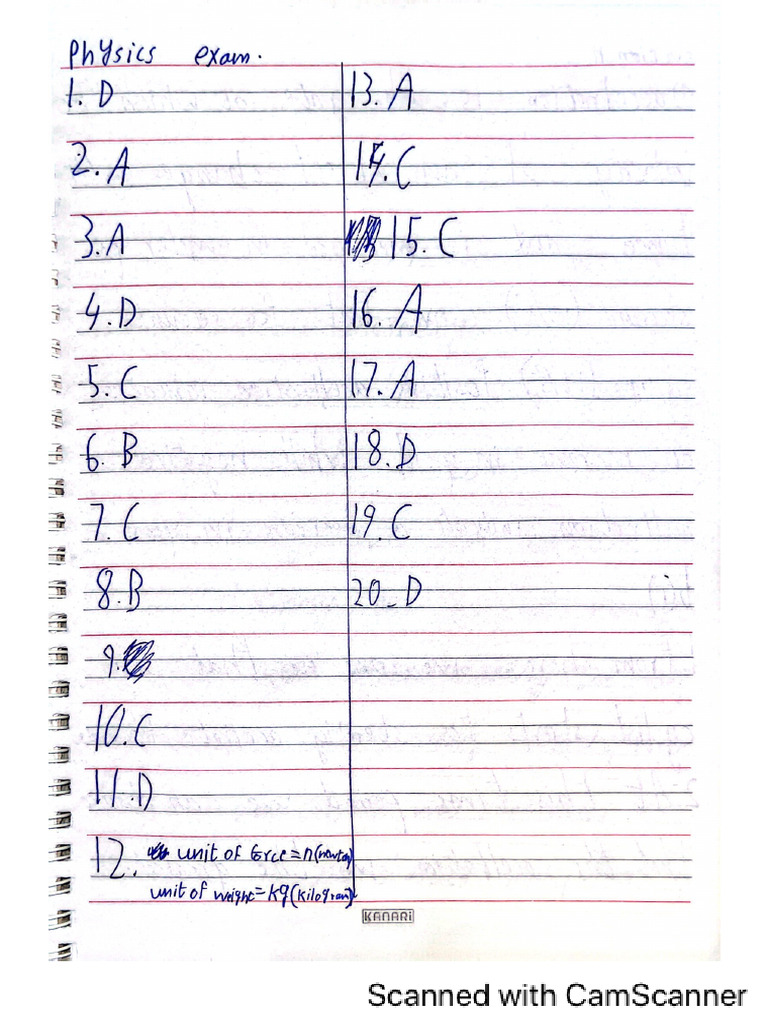 Physics exam.
1. D
2. A
3. A
4. D
5. C
6. B
7. C
8. B
9.
10. C
11. D
12. unit of force = n (newton)
unit of weight = kg (kilogram)
13. A
14. C
15. C
16. A
17. A
18. D
19. C
20_ D
KANARI
Scanned with CamScanner